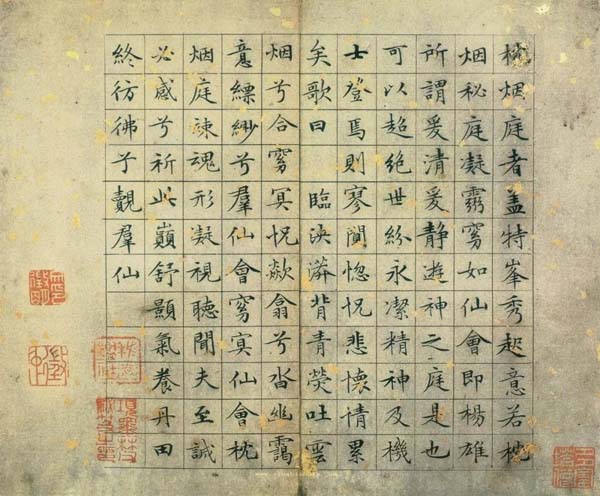 枕烟庭者盖特峯秀起意若枕
烟秘庭凝霧窈如仙會即楊雄
所謂爰清爰静遊神之庭是也
可以超絶世紛永潔精神及機
士登焉則寥闃惚怳悲懷情累
矣歌曰 臨泱漭背青熒吐雲
烟兮合窈冥怳欻翕兮沓幽靄
意縹緲兮羣仙會窈冥仙會枕
烟庭竦魂形凝視聽聞夫至誠
必感兮祈此巔舒顥氣養丹田
終彷彿兮覿羣仙